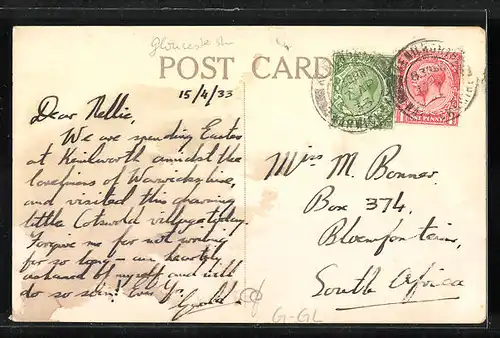 Gloucestersh
POST CARD
15/4/33
Dear Nellie,
We are spending Easter
at Kenilworth amidst the
loveliness of Warwickshire,
and visited this charming
little Cotswold village today.
Forgive me for not writing
for so long – am heartily
ashamed of myself and will
do so soon! Love Yr.
Miss M. Bonner
Box 374,
Bloemfontein,
South Africa
ONE PENNY
G-GL